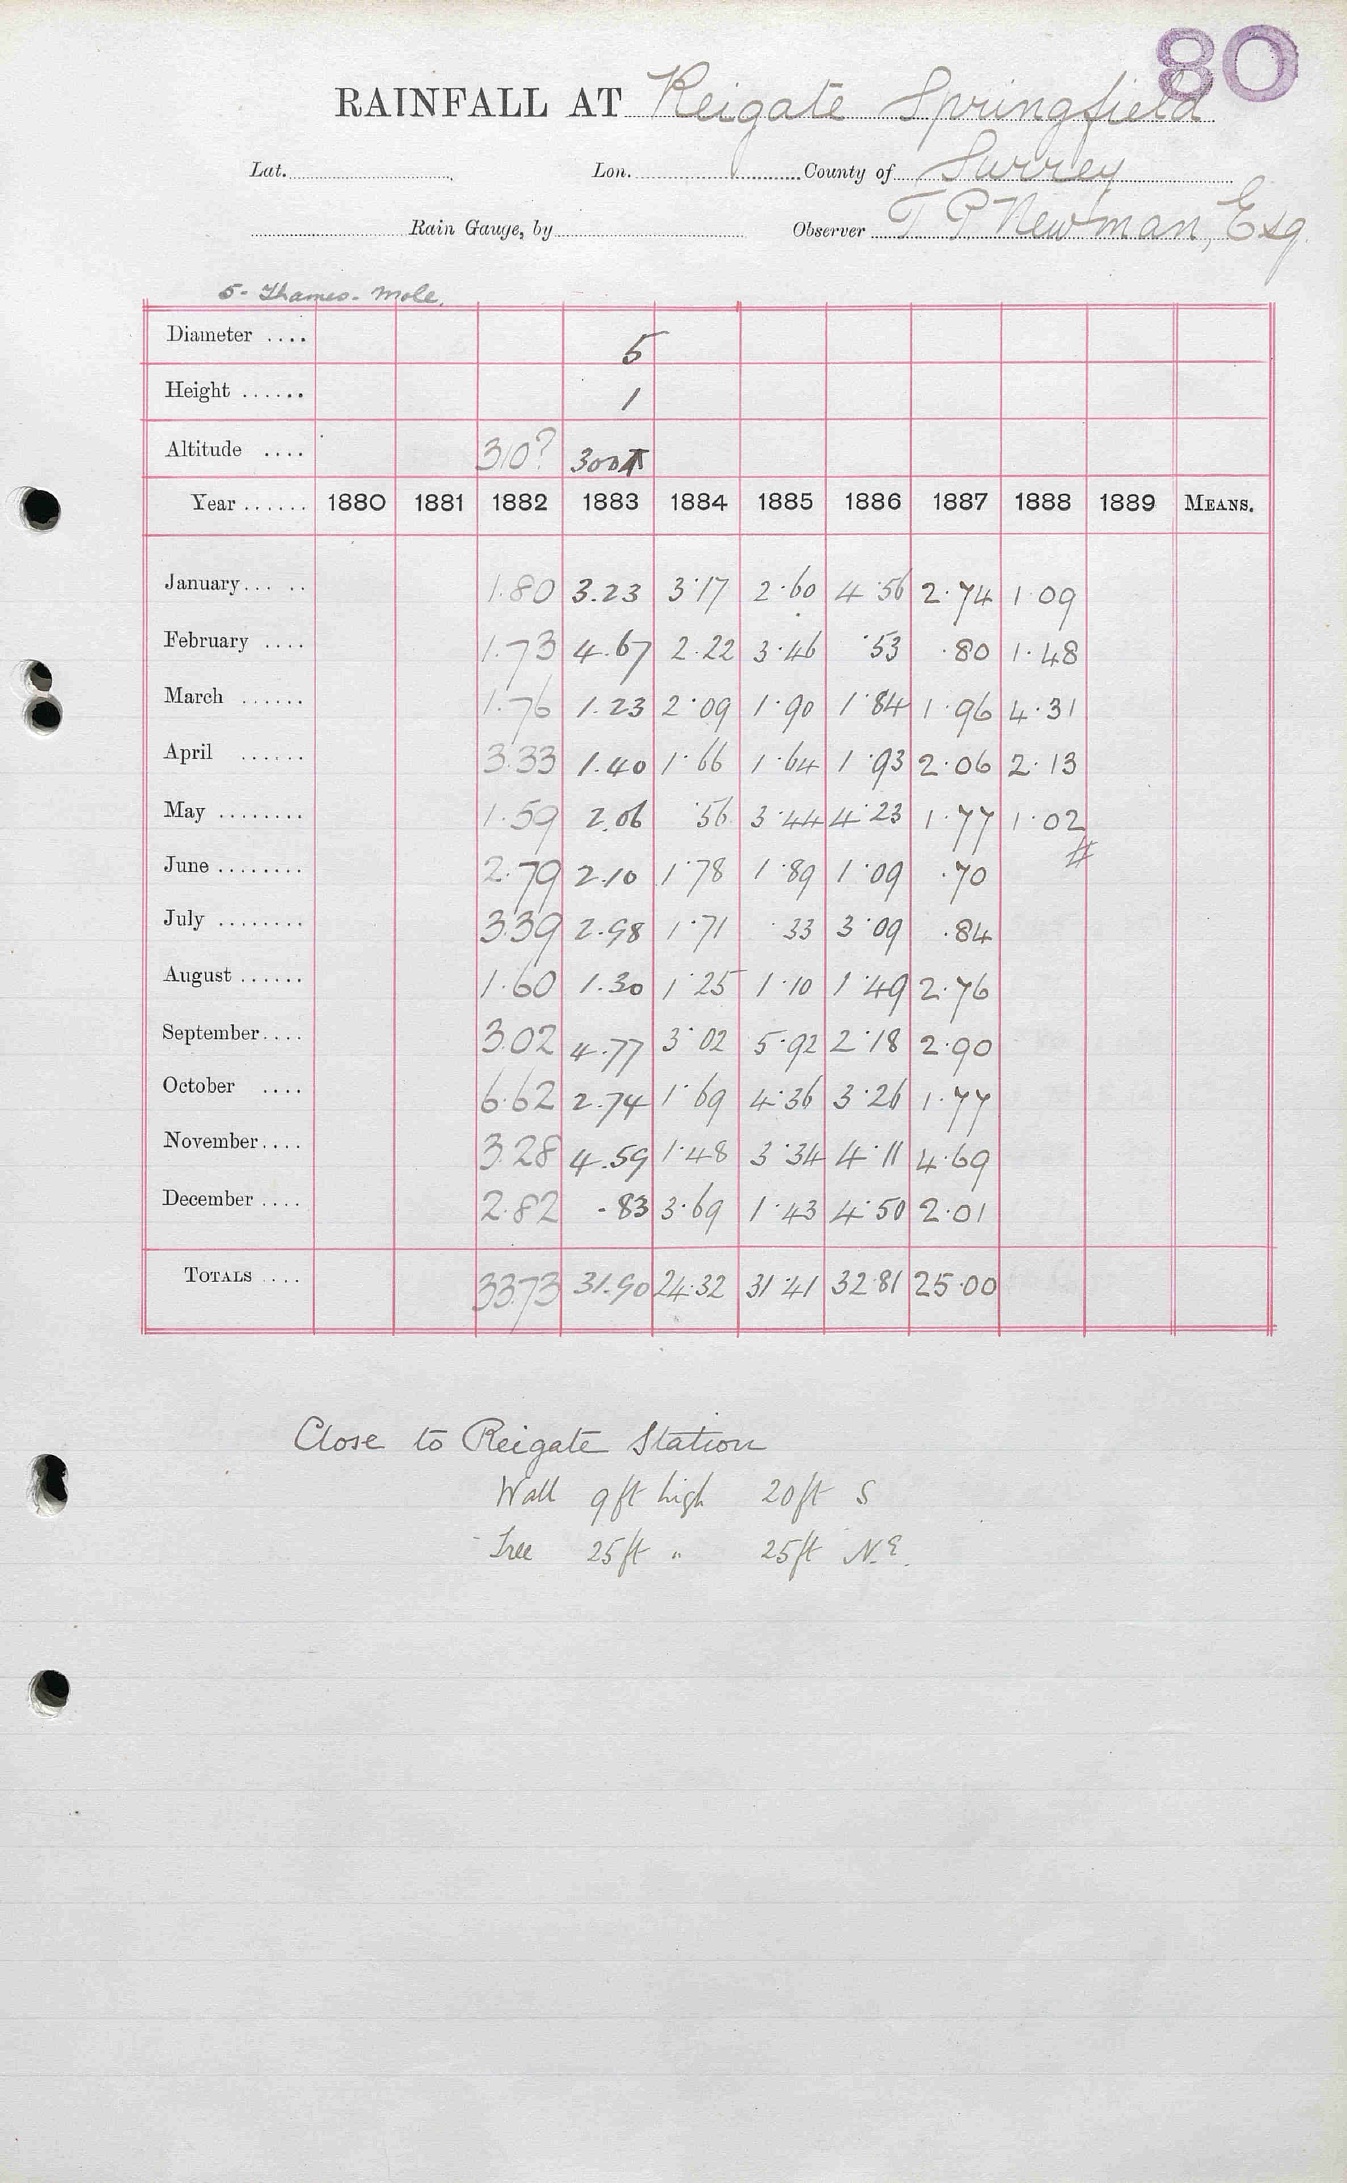 80
RAINFALL AT Reigate Springfield
Lat. Lon. County of Surrey
Rain Gauge, by Observer T P Newman, Esq
5 - Thames - Mole.
Diameter .... 5
Height ...... 1
Altitude .... 310? 300
Year ...... 1880 1881 1882 1883 1884 1885 1886 1887 1888 1889 MEANS.
January... .. 1.80 3.23 3.17 2.60 4.56 2.74 1.09
February .... 1.73 4.67 2.22 3.46 .53 .80 1.48
March ...... 1.76 1.23 2.09 1.90 1.84 1.96 4.31
April ...... 3.33 1.40 1.66 1.64 1.93 2.06 2.13
May ........ 1.59 2.06 .56 3.44 4.23 1.77 1.02
June ........ 2.79 2.10 1.78 1.89 1.09 .70 #
July ........ 3.39 2.98 1.71 .33 3.09 .84
August ...... 1.60 1.30 1.25 1.10 1.49 2.76
September.... 3.02 4.77 3.02 5.92 2.18 2.90
October .... 6.62 2.74 1.69 4.36 3.26 1.77
November.... 3.28 4.59 1.48 3.34 4.11 4.69
December .... 2.82 .83 3.69 1.43 4.50 2.01
TOTALS .... 33.73 31.90 24.32 31.41 32.81 25.00
Close to Reigate Station
Wall 9ft high 20ft S
Tree 25ft " 25ft N.E.